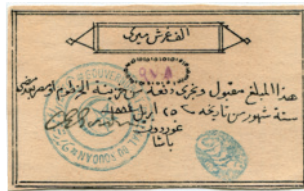 الف غرش ميرى
هذا المبلغ مقبول وتجرى دفعه من خزينة الخرطوم او مصر بمضى
ستة شهور من تاريخه ٢٥ ابريل ١٨٨٤
غوردون
باشا